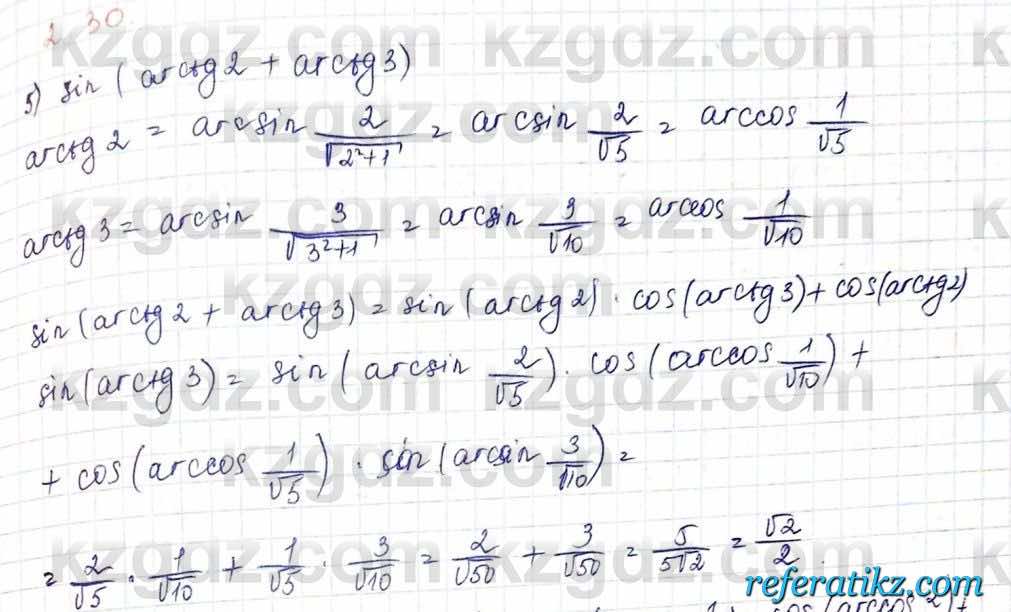 2.30
5) sin (arctg 2 + arctg 3)
arctg 2 = arcsin 2/√(2²+1) = arcsin 2/√5 = arccos 1/√5
arctg 3 = arcsin 3/√(3²+1) = arcsin 3/√10 = arccos 1/√10
sin (arctg 2 + arctg 3) = sin (arctg 2) · cos (arctg 3) + cos (arctg 2)
sin (arctg 3) = sin (arcsin 2/√5) · cos (arccos 1/√10) +
+ cos (arccos 1/√5) · sin (arcsin 3/√10) =
= 2/√5 · 1/√10 + 1/√5 · 3/√10 = 2/√50 + 3/√50 = 5/5√2 = √2/2
referatikz.com
kzgdz.com